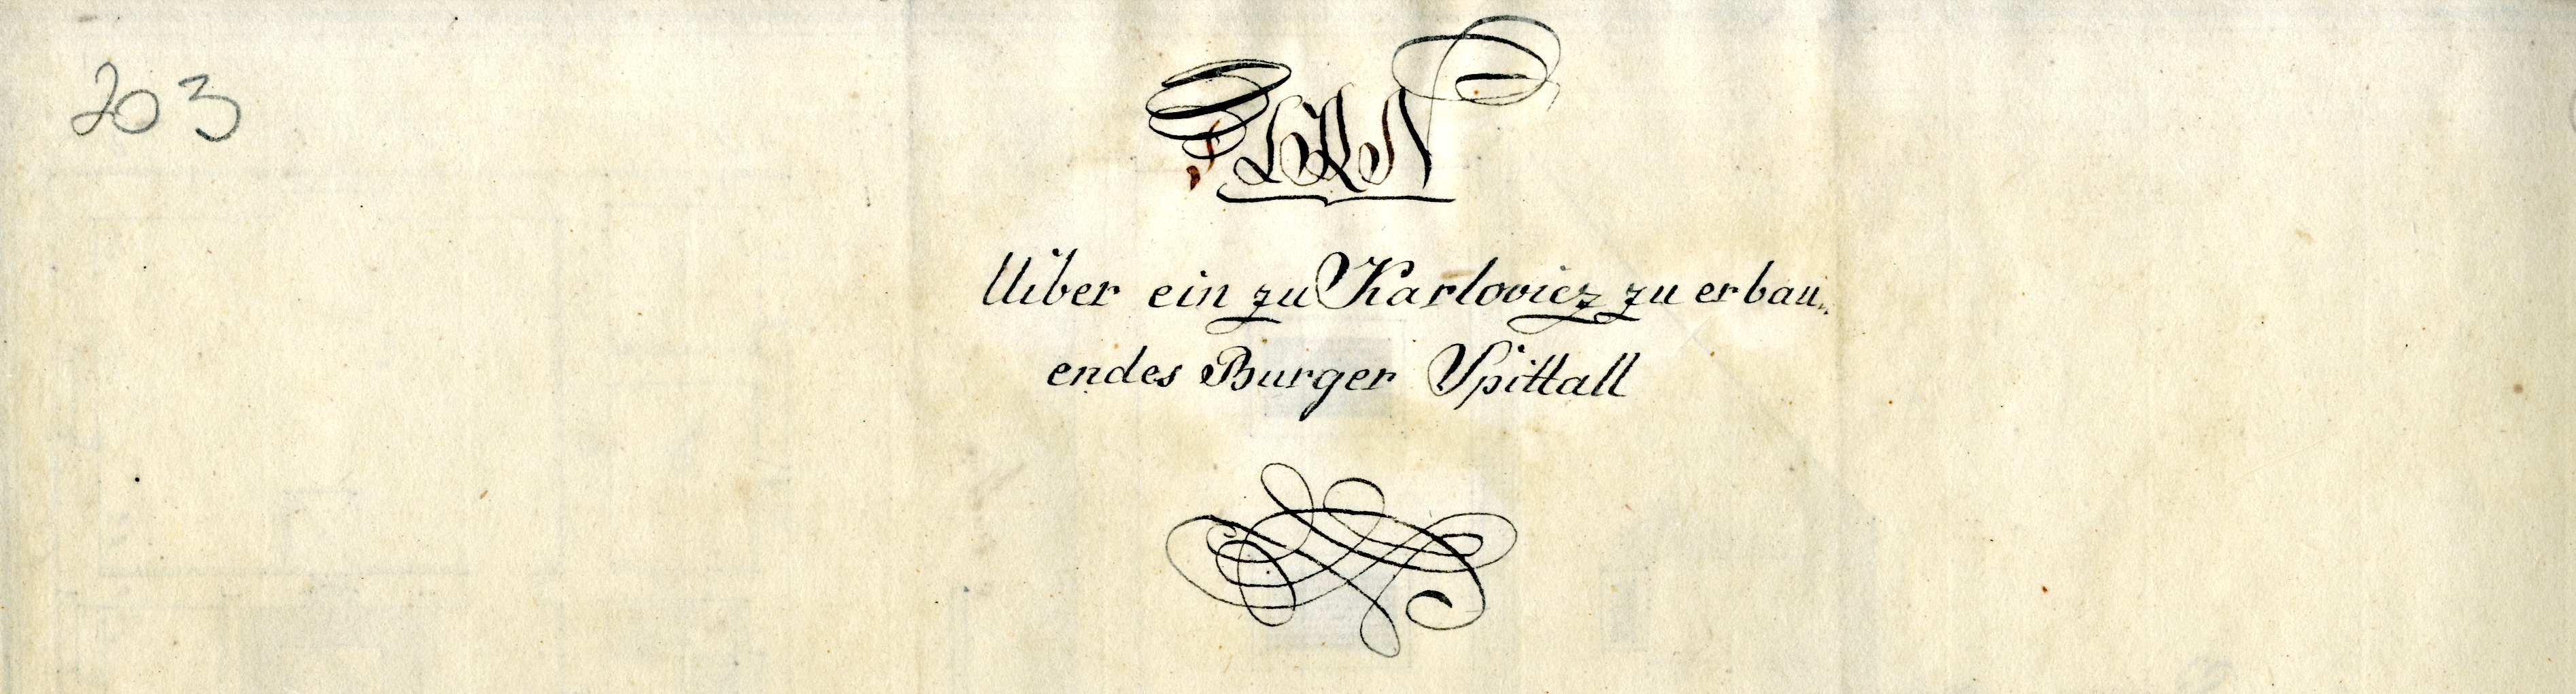 203
PLAN
Uiber ein zu Karlovicz zu erbau„
endes Burger Spittall